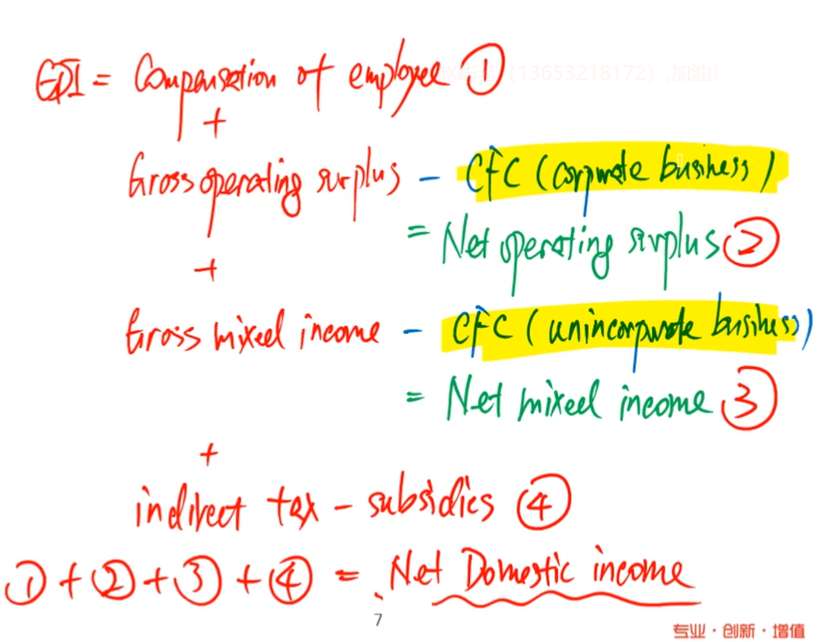 GDI = Compensation of employee ①
(13653218172)
+
Gross operating surplus - CFC (corporate business)
= Net operating surplus ②
+
Gross mixed income - CFC (unincorporate business)
= Net mixed income ③
+
indirect tax - subsidies ④
① + ② + ③ + ④ = Net Domestic income
7
专业·创新·增值